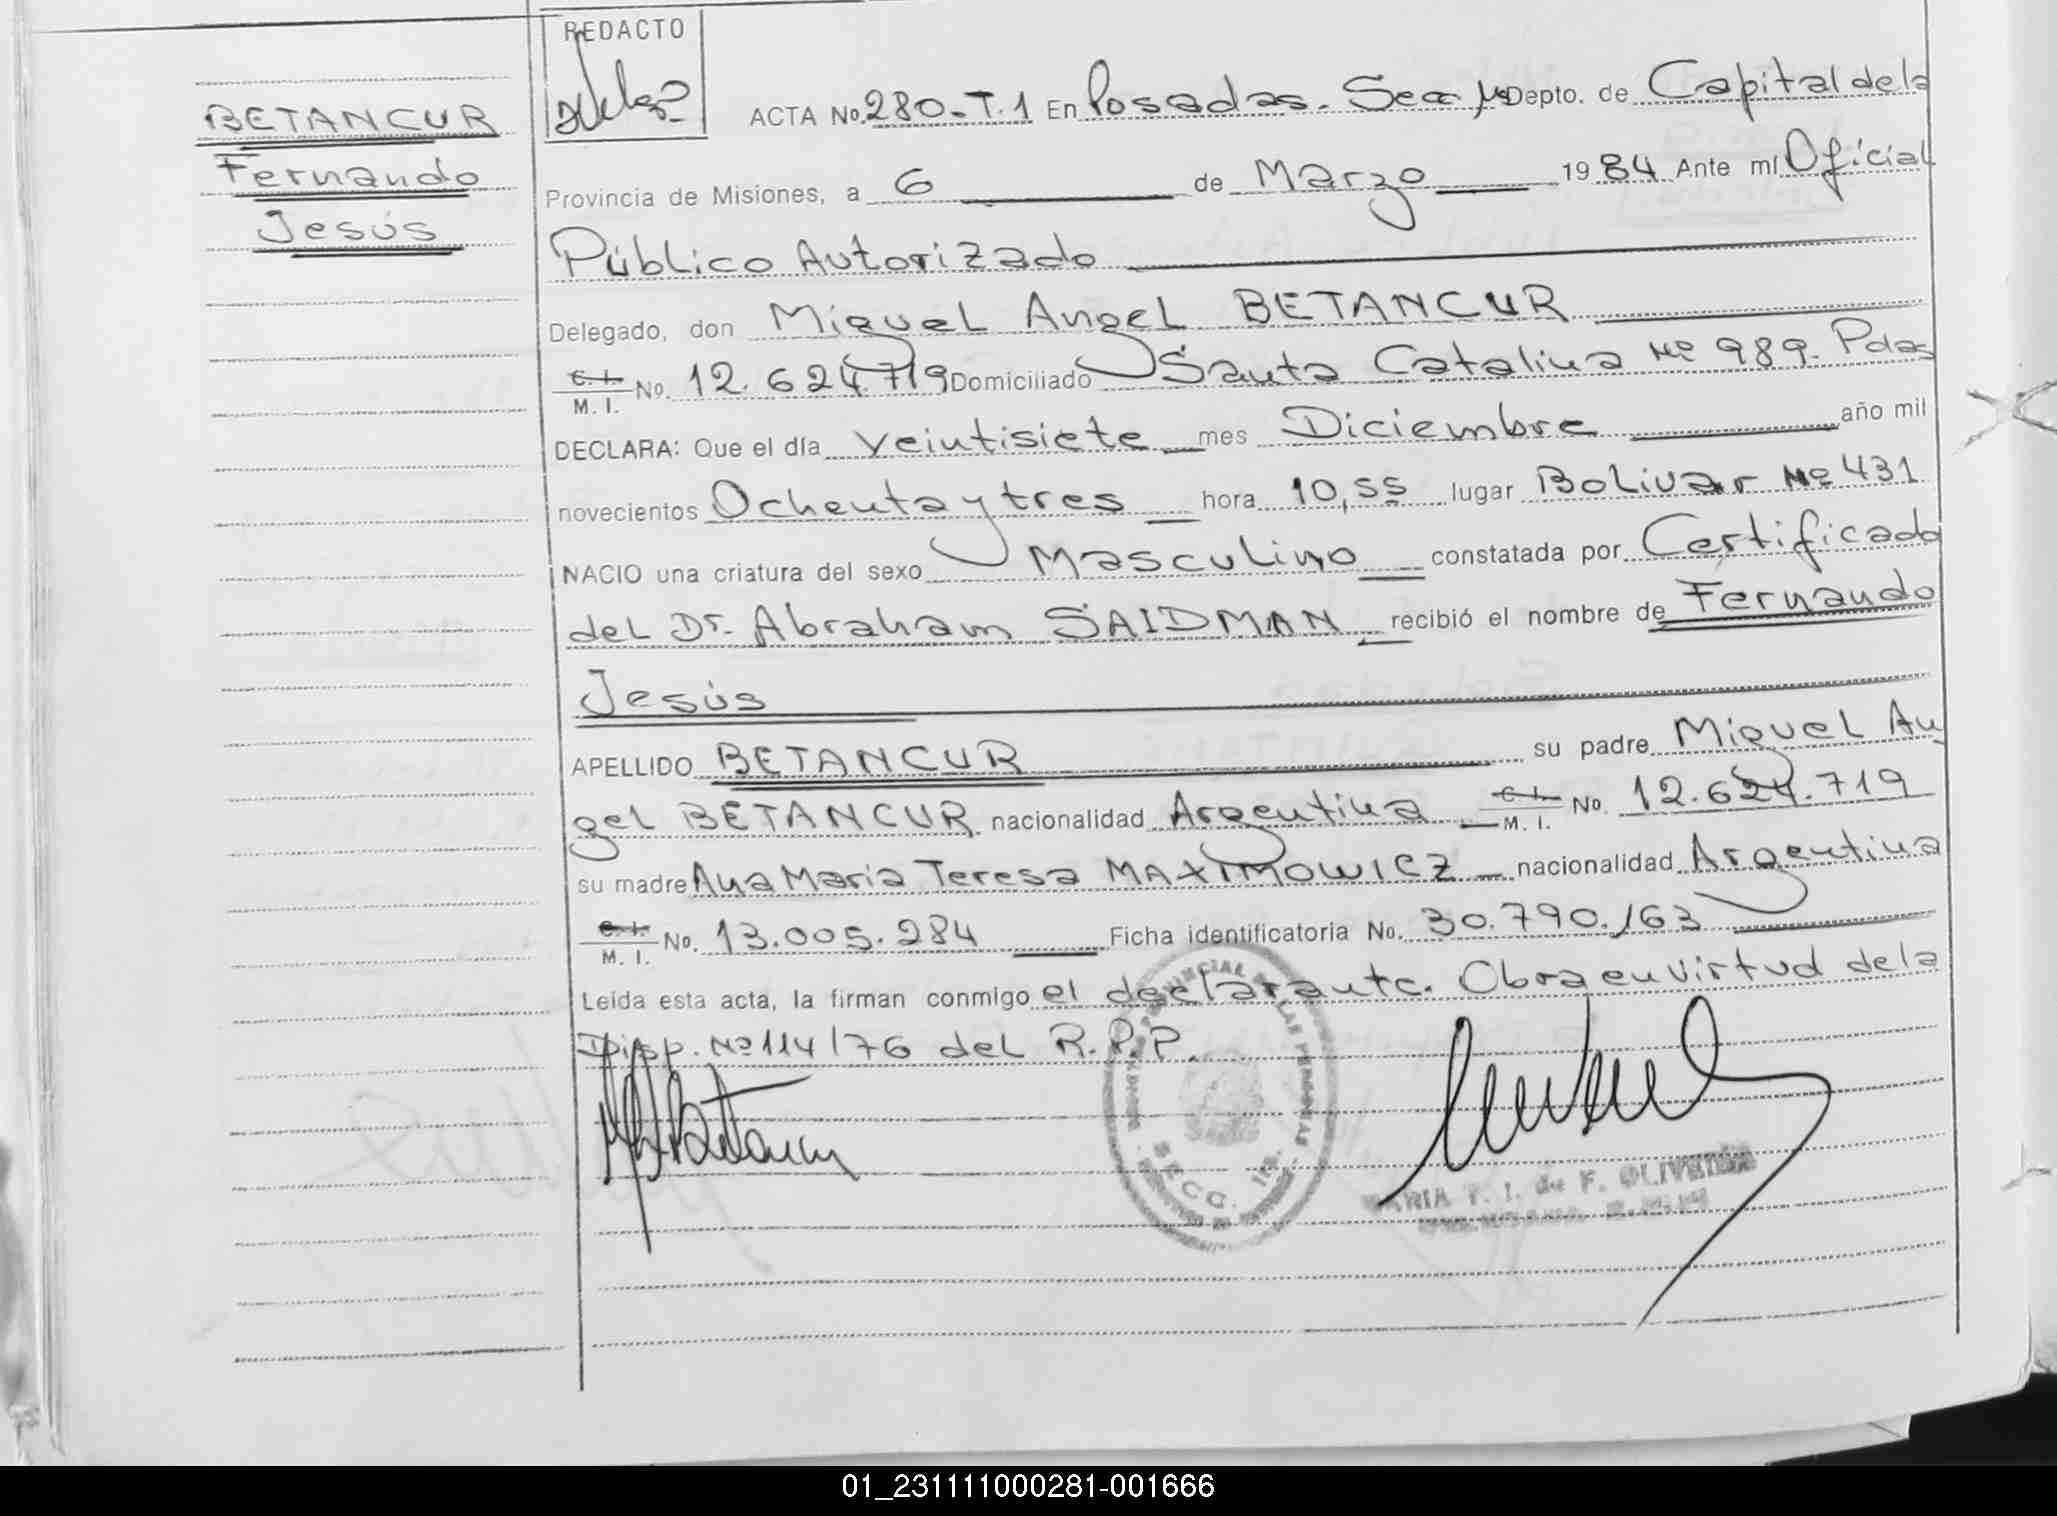 BETANCUR
Fernando
Jesús
REDACTO
ACTA No. 280-T.1 En Posadas. Depto. de Capital de la
Provincia de Misiones, a 6 de Marzo 1984 Ante mí Oficial
Público Autorizado
Delegado, don Miguel Angel BETANCUR
C. I. M. I. No. 12.624.719 Domiciliado Santa Catalina Nº 989. Pdas
DECLARA: Que el día veintisiete mes Diciembre año mil
novecientos Ochenta y tres hora 10,55 lugar Bolivar Nº 431
NACIO una criatura del sexo Masculino constatada por Certificado
del Dr. Abraham SAIDMAN recibió el nombre de Fernando
Jesús
APELLIDO BETANCUR su padre Miguel An
gel BETANCUR nacionalidad Argentina C. I. M. I. No. 12.624.719
su madre Ana Maria Teresa MAXIMOWICZ nacionalidad Argentina
C. I. M. I. No. 13.005.284 Ficha identificatoria No. 30.790.163
Leída esta acta, la firman conmigo el declarante. Obra en virtud de la
Disp. Nº 114/76 del R.P.P.
01_231111000281-001666